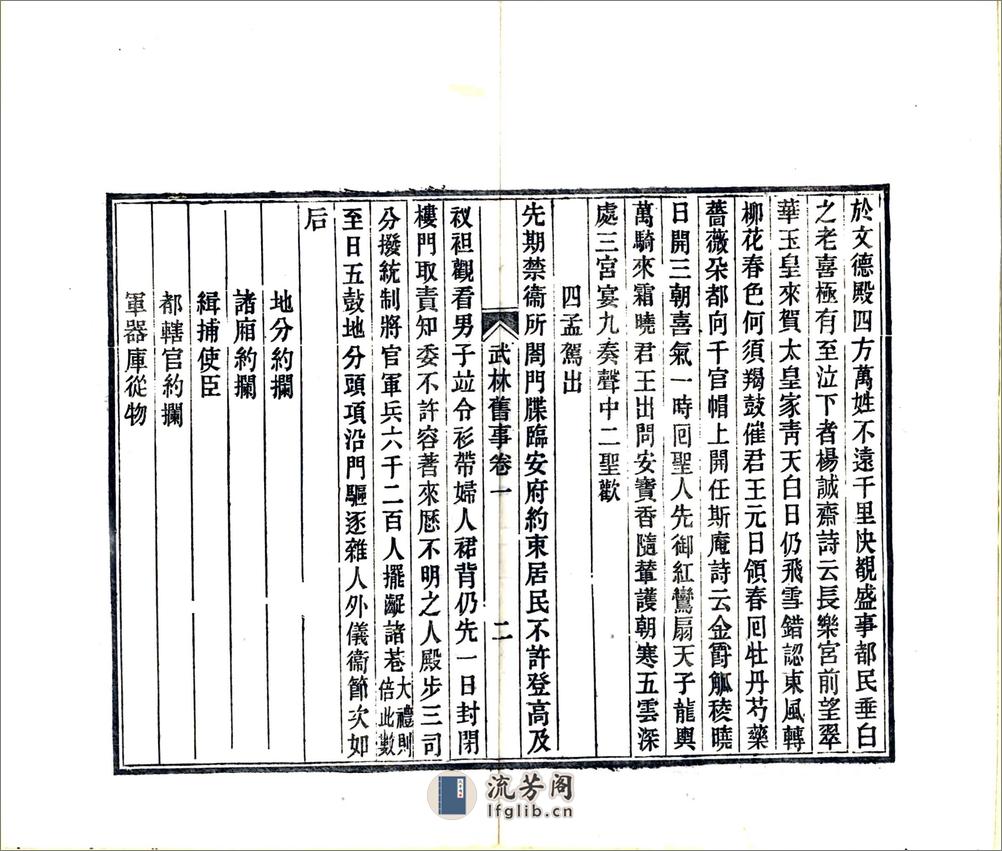 於文德殿四方萬姓不遠千里快覩盛事都民垂白
之老喜極有至泣下者楊誠齋詩云長樂宮前望翠
華玉皇來賀太皇家青天白日仍飛雪錯認東風轉
柳花春色何須羯鼓催君王元日領春回牡丹芍藥
薔薇朶都向千官帽上開任斯庵詩云金爵觚稜曉
日開三朝喜氣一時回聖人先御紅鸞扇天子龍輿
萬騎來霜曉君王出問安寶香隨輦護朝寒五雲深
處三宮宴九奏聲中二聖歡
四孟駕出
先期禁衞所閤門牒臨安府約束居民不許登高及
武林舊事卷一
二
衩袒觀看男子竝令衫帶婦人裙背仍先一日封閉
樓門取責知委不許容著來歷不明之人殿步三司
分撥統制將官軍兵六千二百人擺龊諸巷大禮則
倍此數
至日五鼓地分頭項沿門驅逐雜人外儀衞節次如
后
地分約攔
諸廂約攔
緝捕使臣
都轄官約攔
軍器庫從物
流芳阁
lfglib.cn